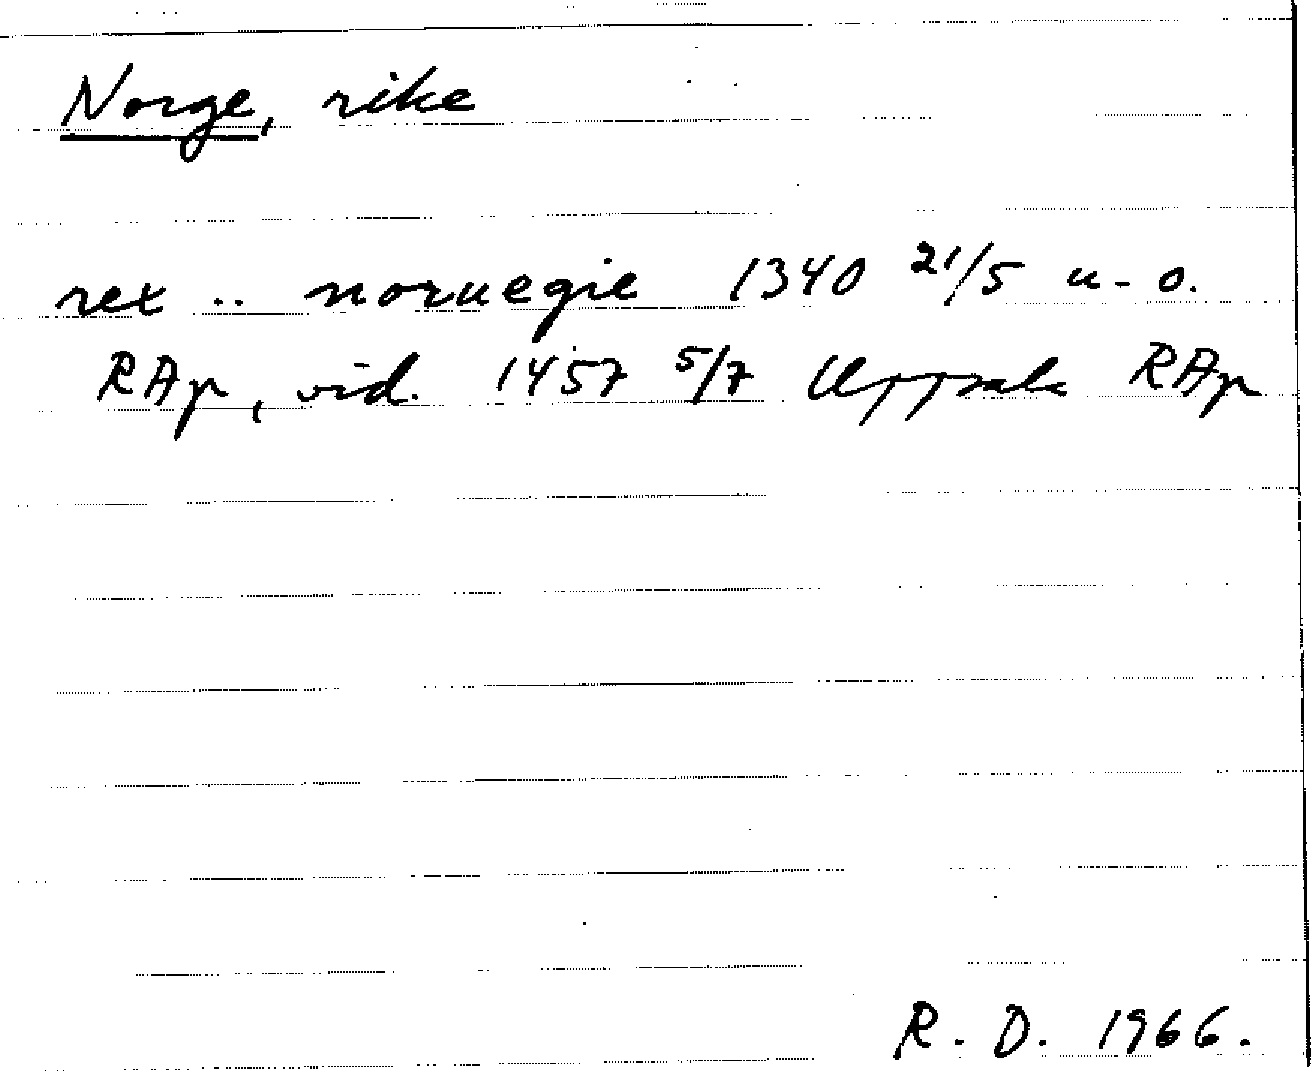 Norge, rike
rex .. noruegie 1340 21/5 u. o.
RAp, vid. 1457 5/7 Uppsala RAp
R. D. 1966.